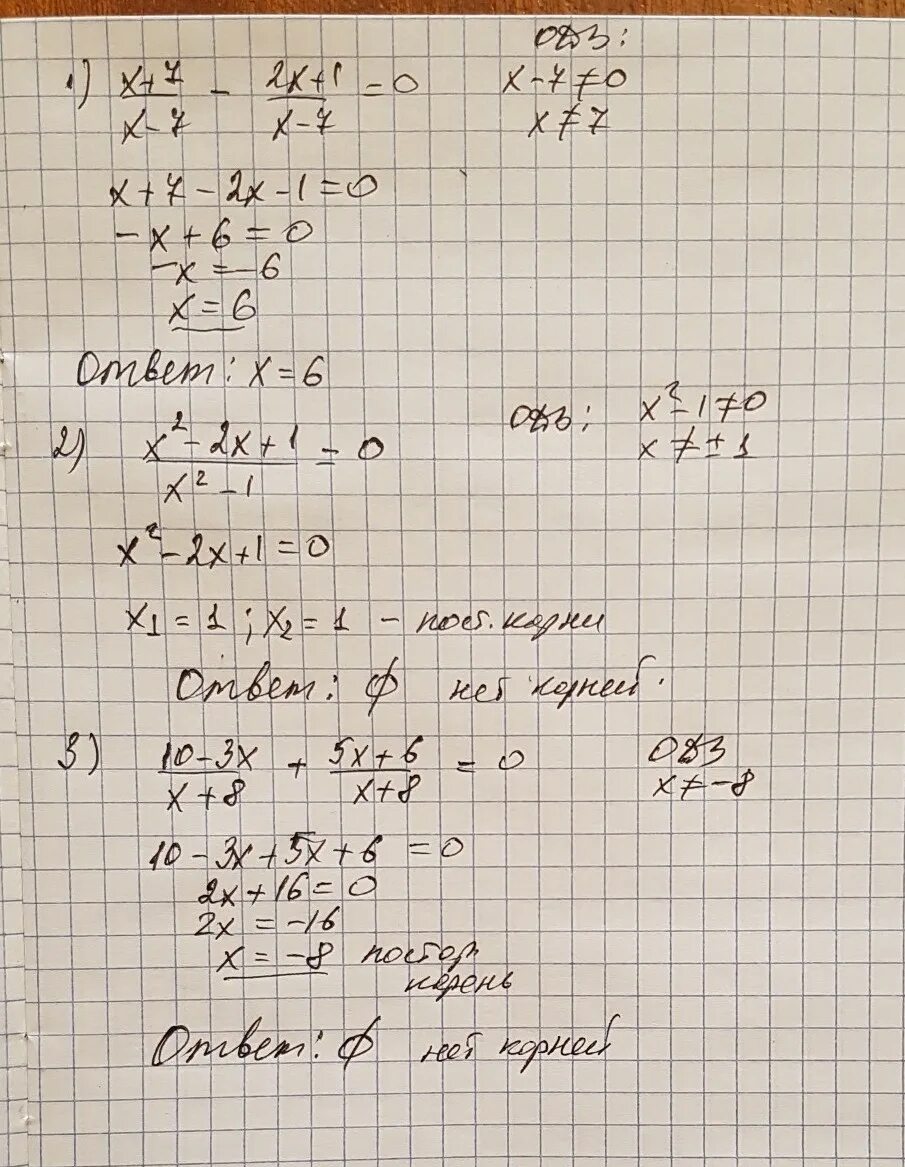 ОДЗ:
1) (x+7)/(x-7) - (2x+1)/(x-7) = 0 x-7≠0
x≠7
x+7-2x-1=0
-x+6=0
-x=-6
x=6
Ответ: x=6
ОДЗ: x²-1≠0
x≠±1
2) (x²-2x+1)/(x²-1) = 0
x²-2x+1=0
x₁=1; x₂=1 - пост. корни
Ответ: ∅ нет корней.
3) (10-3x)/(x+8) + (5x+6)/(x+8) = 0 ОДЗ
x≠-8
10-3x+5x+6=0
2x+16=0
2x=-16
x=-8 постор
корень
Ответ: ∅ нет корней